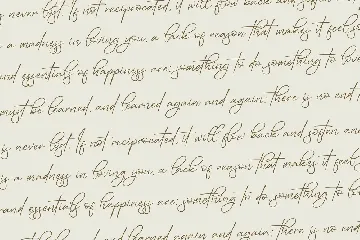 is never lost. If not reciprocated, it will flow back and
a madness in loving you, a lack of reason that makes it feel so
and essentials of happiness are: something to do, something to love
must be learned, and learned again and again; there is no end
is never lost. If not reciprocated, it will flow back and soften and
is a madness in loving you, a lack of reason that makes it feel
and essentials of happiness are: something to do, something to
learned, and learned again and again; there is no end